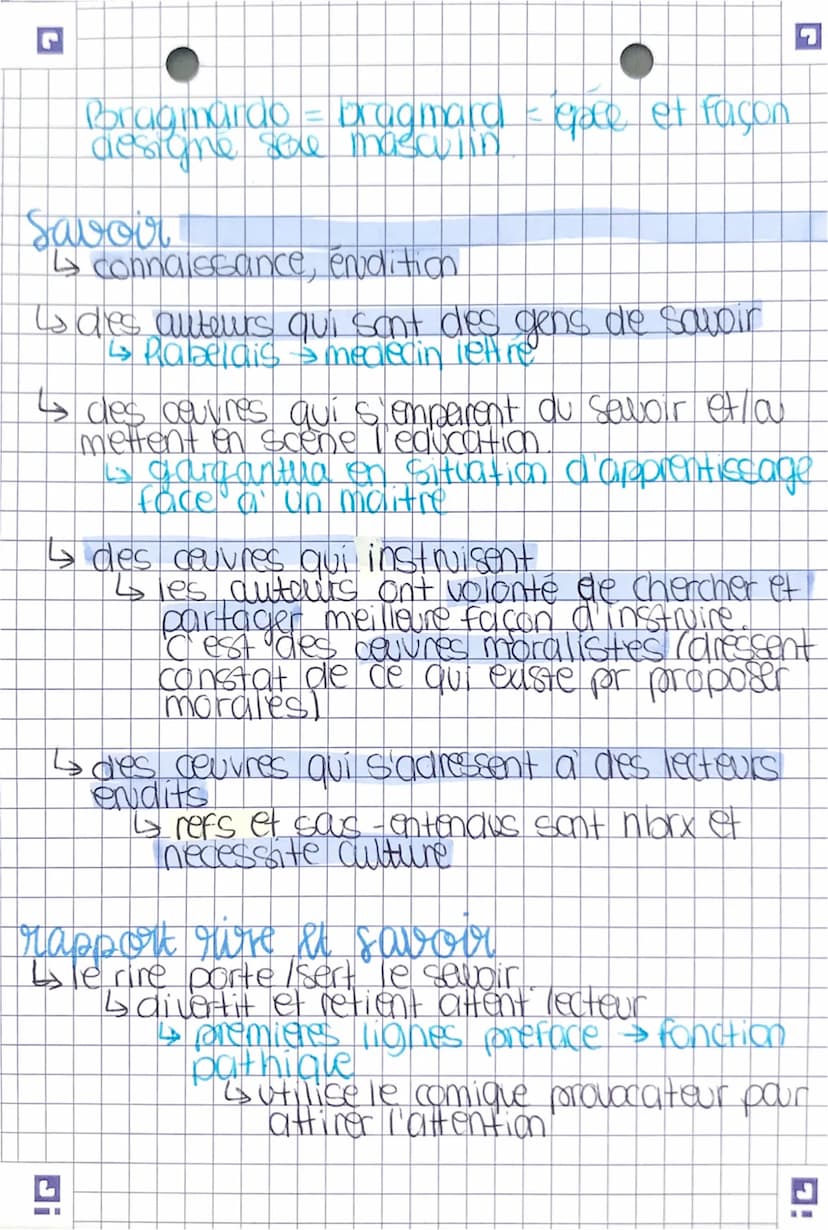 Bragmardo = bragmard = épée et façon
designe sexe masculin
Savoir
↳ connaissance, érudition
↳ des auteurs qui sont des gens de savoir
↳ Rabelais → medecin lettré
↳ des œuvres qui s'emparent du savoir et/ou
mettent en scène l'éducation.
↳ gargantua en situation d'apprentissage
face à un maitre
↳ des œuvres qui instruisent
↳ les auteurs ont volonté de chercher et
partager meilleure façon d'instruire.
C'est des œuvres moralistes (dressent
constat de ce qui existe pr proposer
morales)
↳ des œuvres qui s'adressent à des lecteurs
érudits
↳ refs et sous-entendus sont nbrx et
necessite culture
rapport rire et savoir
↳ le rire porte/sert le savoir.
↳ divertit et retient attent lecteur
↳ premières lignes préface → fonction
pathique
↳ utilise le comique provocateur pour
attirer l'attention